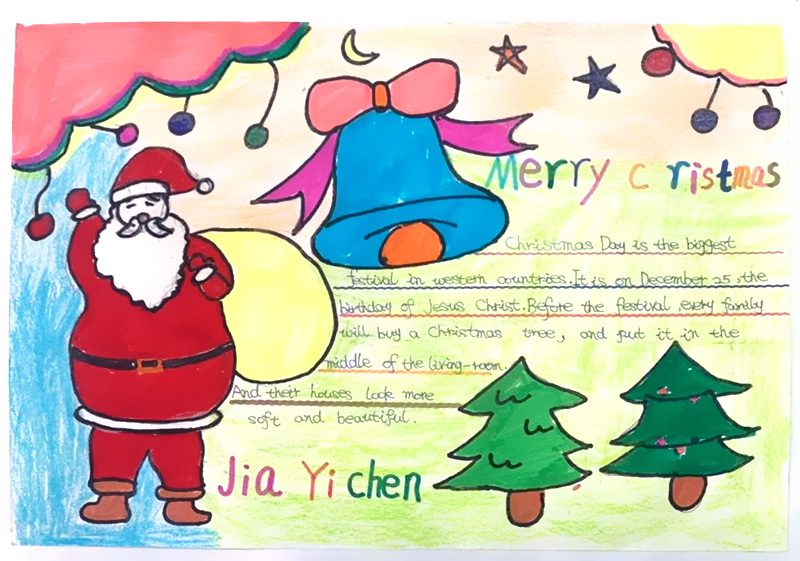 Merry c ristmas
Christmas Day is the biggest
festival in western countries.It is on December 25,the
birthday of Jesus Christ.Before the festival,every family
will buy a Christmas tree, and put it in the
middle of the living-room.
And their houses look more
soft and beautiful.
Jia Yi chen